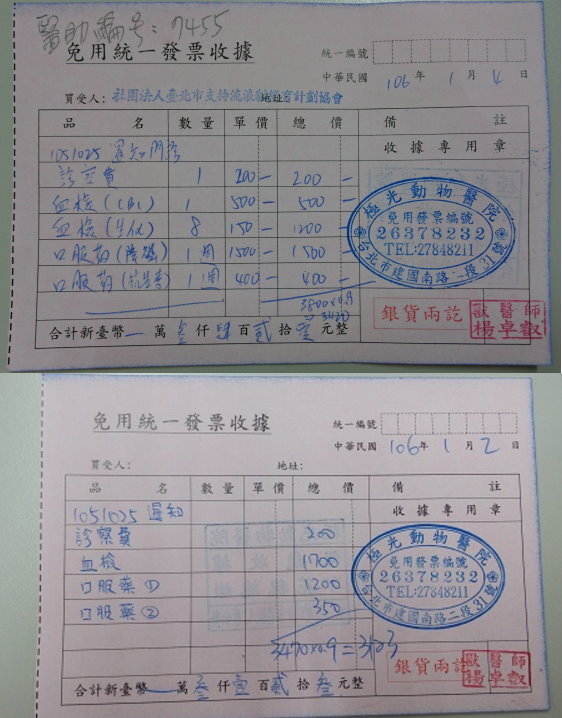 醫助編號：7455
免用統一發票收據
統一編號
中華民國 106年 1月 4日
買受人：社團法人臺北市支持流浪動物絕育計劃協會 地址：
品名 數量 單價 總價 備註
1051025 門診 收據專用章
診察費 1 200- 200-
血檢(CBC) 1 500- 500-
血檢(生化) 8 150- 1200-
口服藥 1週 1500- 1500-
口服藥(抗生素) 1週 400- 400-
3800×0.9
3420
極光動物醫院
免用發票編號
26378232
TEL:27848211
台北市建國南路二段31號
銀貨兩訖
獸醫師
楊卓叡
合計新臺幣 萬叁仟肆百貳拾 元整
免用統一發票收據
統一編號
中華民國 106年 1月 2日
買受人： 地址：
品名 數量 單價 總價 備註
1051025 收據專用章
診察費 200
血檢 1700
口服藥① 1200
口服藥② 350
3470×0.9=3123
極光動物醫院
免用發票編號
26378232
TEL:27848211
台北市建國南路二段31號
銀貨兩訖
獸醫師
楊卓叡
合計新臺幣 萬叁仟壹百貳拾叁元整